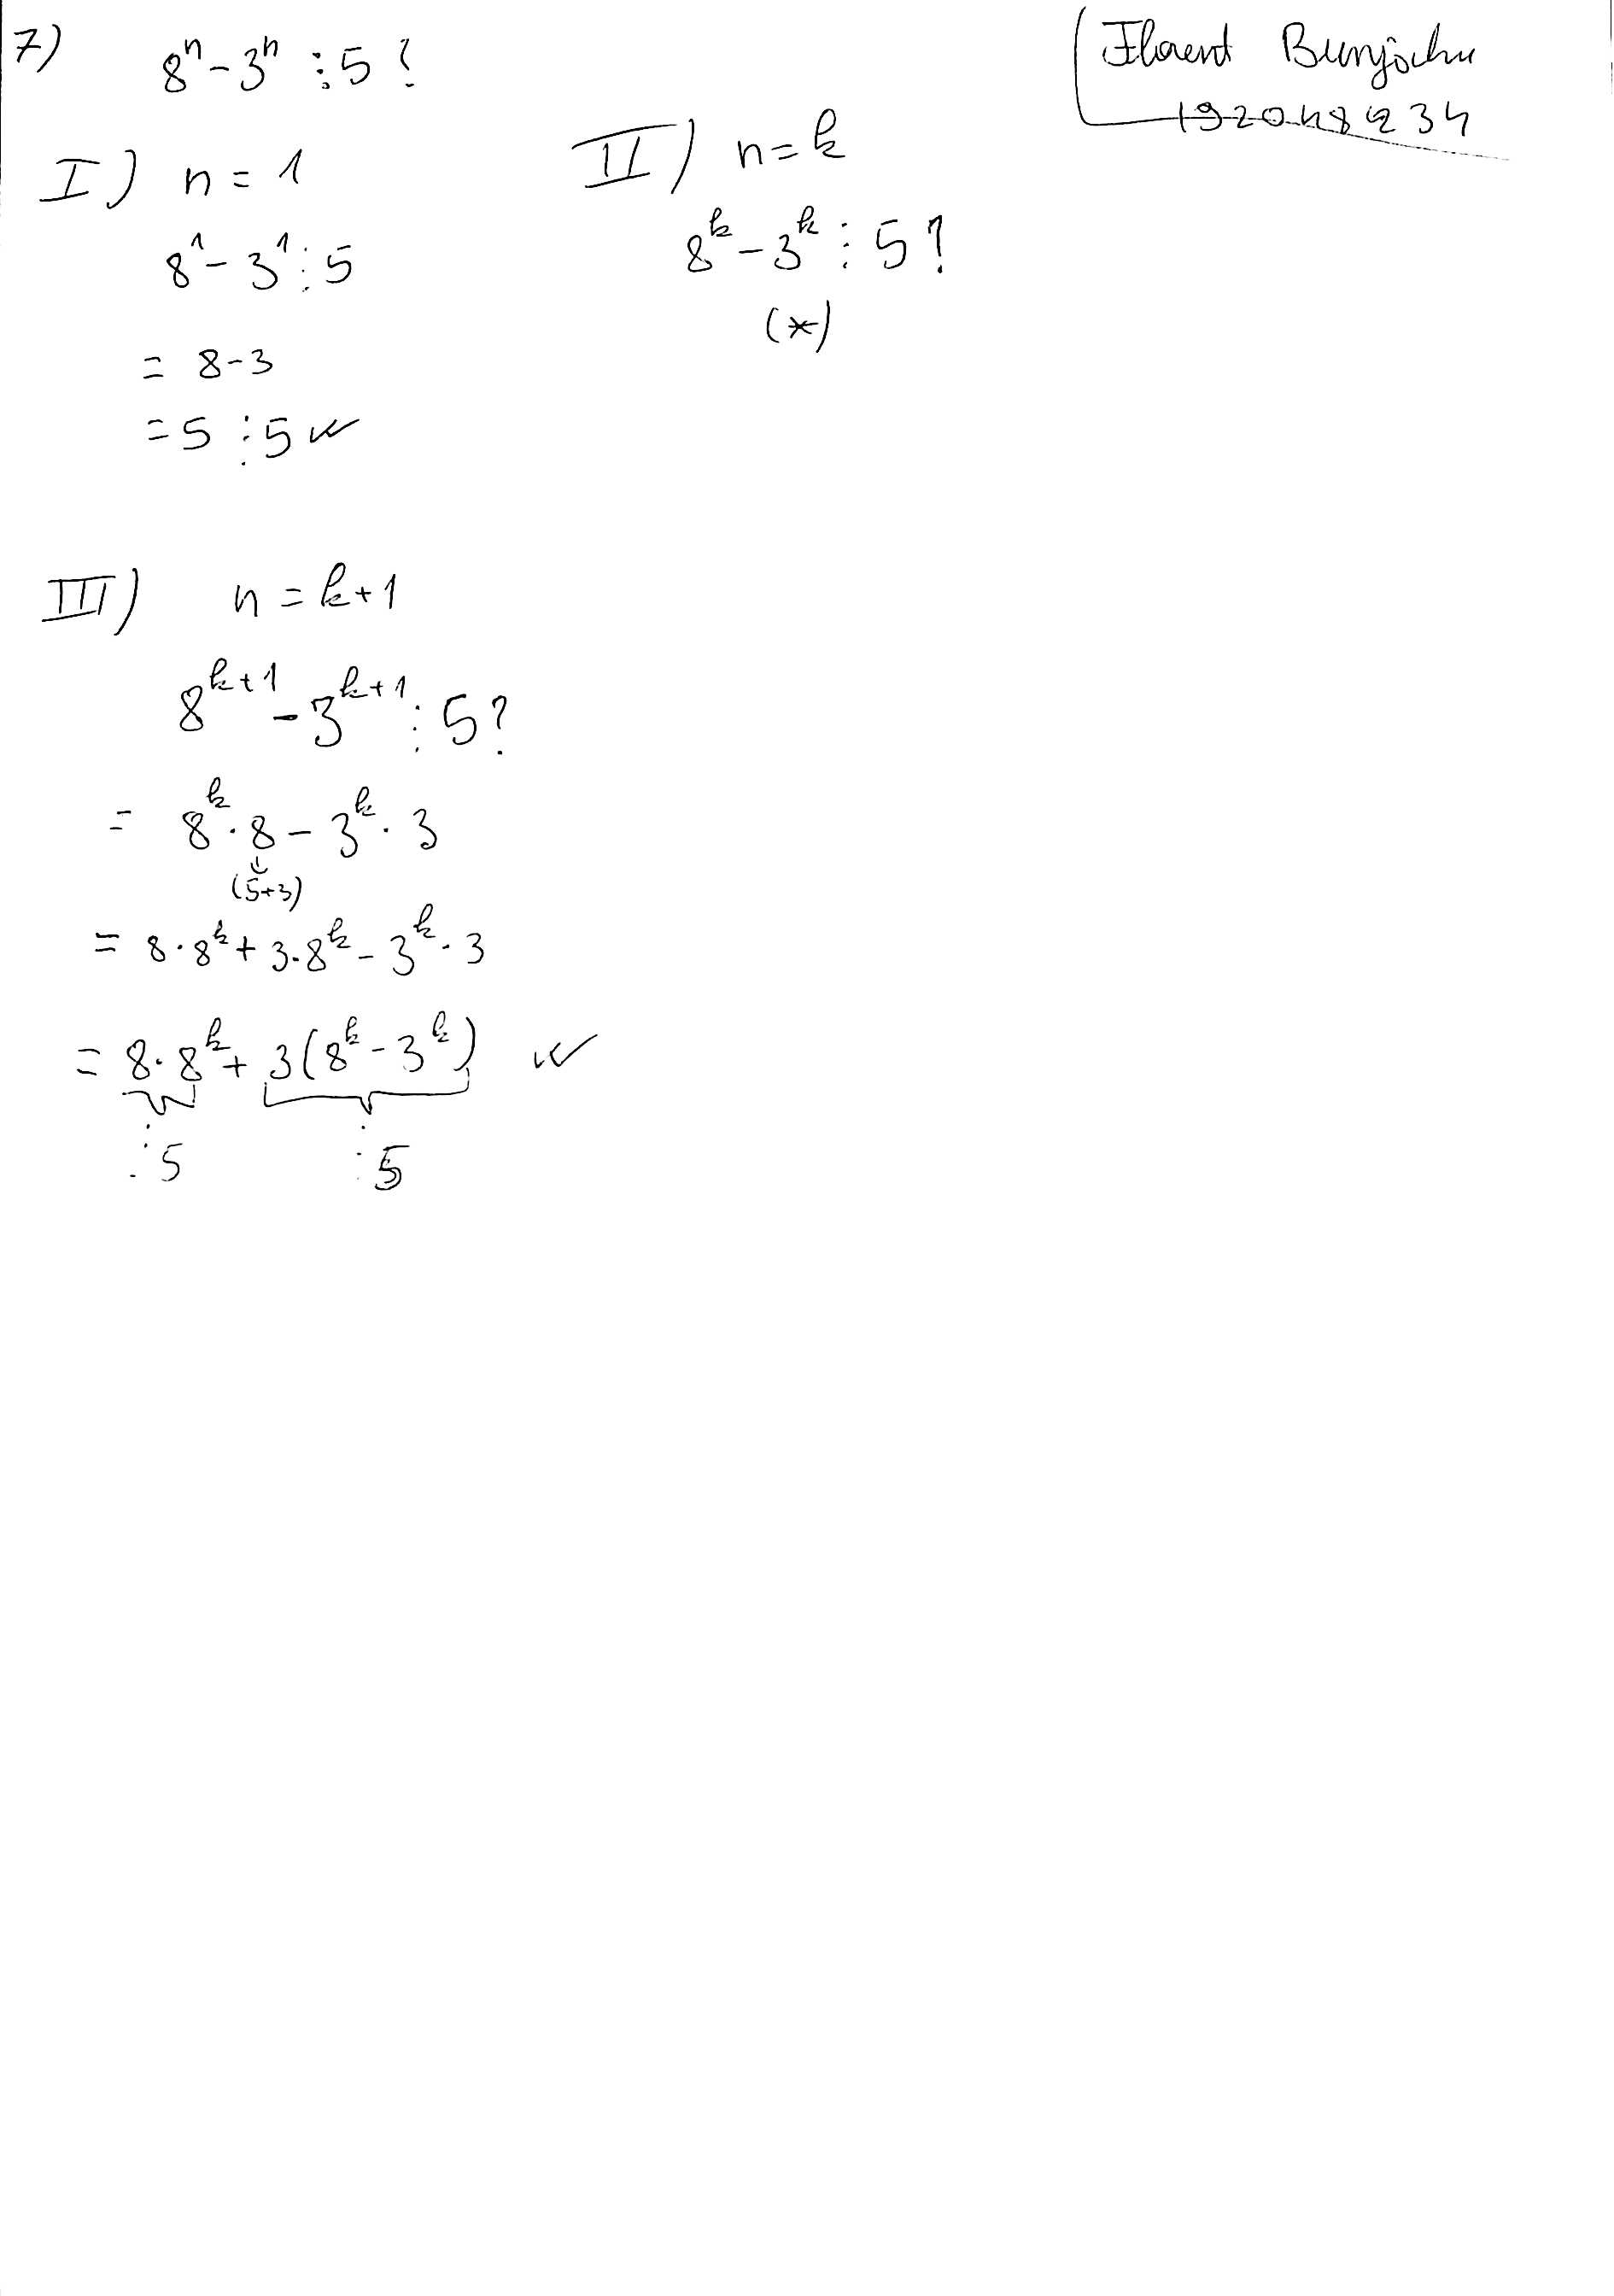 7) 8ⁿ - 3ⁿ ⋮ 5 ?
Florent
192048234
I) n = 1
8¹ - 3¹ ⋮ 5
= 8 - 3
= 5 ⋮ 5 ✓
II) n = k
8ᵏ - 3ᵏ ⋮ 5 ?
(*)
III) n = k + 1
8ᵏ⁺¹ - 3ᵏ⁺¹ ⋮ 5 ?
= 8ᵏ · 8 - 3ᵏ · 3
(5+3)
= 8 · 8ᵏ + 3 · 8ᵏ - 3ᵏ · 3
= 8 · 8ᵏ + 3(8ᵏ - 3ᵏ) ✓
⋮ 5 ⋮ 5